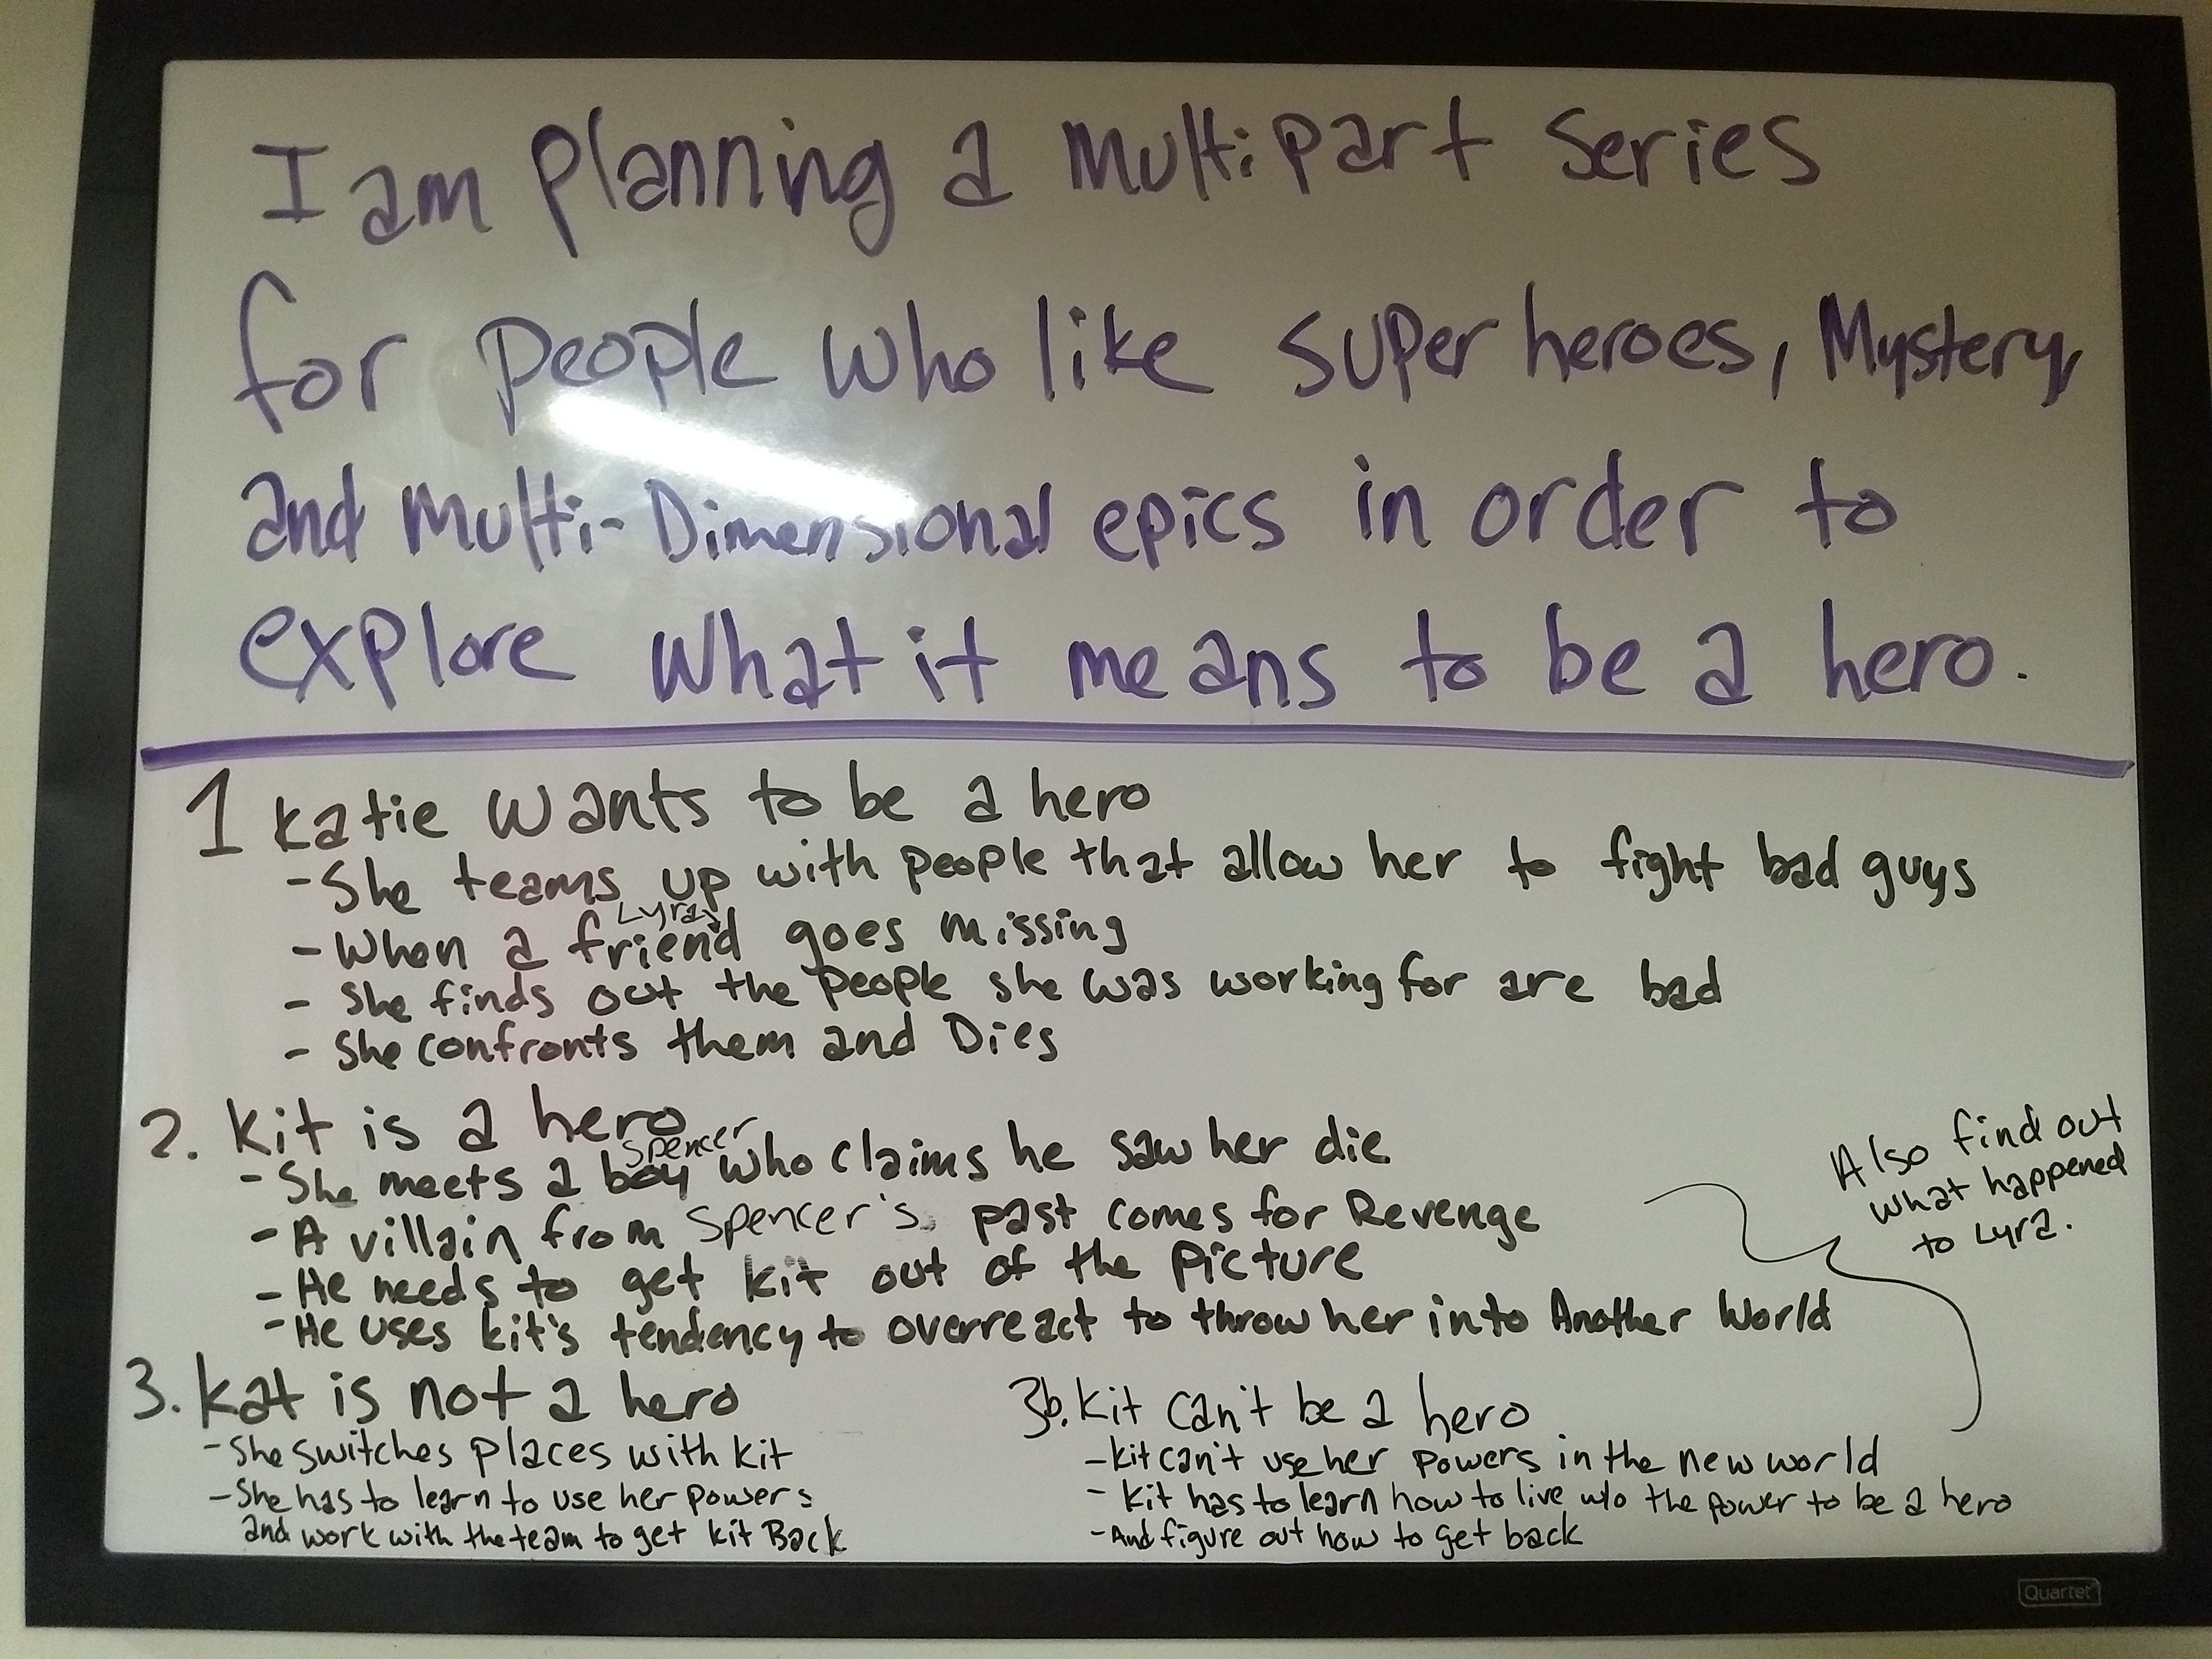 I am planning a multipart series
for people who like super heroes, Mystery,
and multi-Dimensional epics in order to
explore what it means to be a hero.
1 Katie wants to be a hero
- She teams up with people that allow her to fight bad guys
Lyra
- When a friend goes missing
- She finds out the people she was working for are bad
- She confronts them and Dies
2. Kit is a hero
Spencer
- She meets a boy who claims he saw her die
- A villain from Spencer's past comes for Revenge
- He needs to get kit out of the picture
- He uses kit's tendency to overreact to throw her into Another World
Also find out
what happened
to Lyra.
3. Kat is not a hero
- She switches places with kit
- She has to learn to use her powers
and work with the team to get kit Back
3b. Kit can't be a hero
- Kit can't use her powers in the new world
- Kit has to learn how to live w/o the power to be a hero
- And figure out how to get back
Quartet